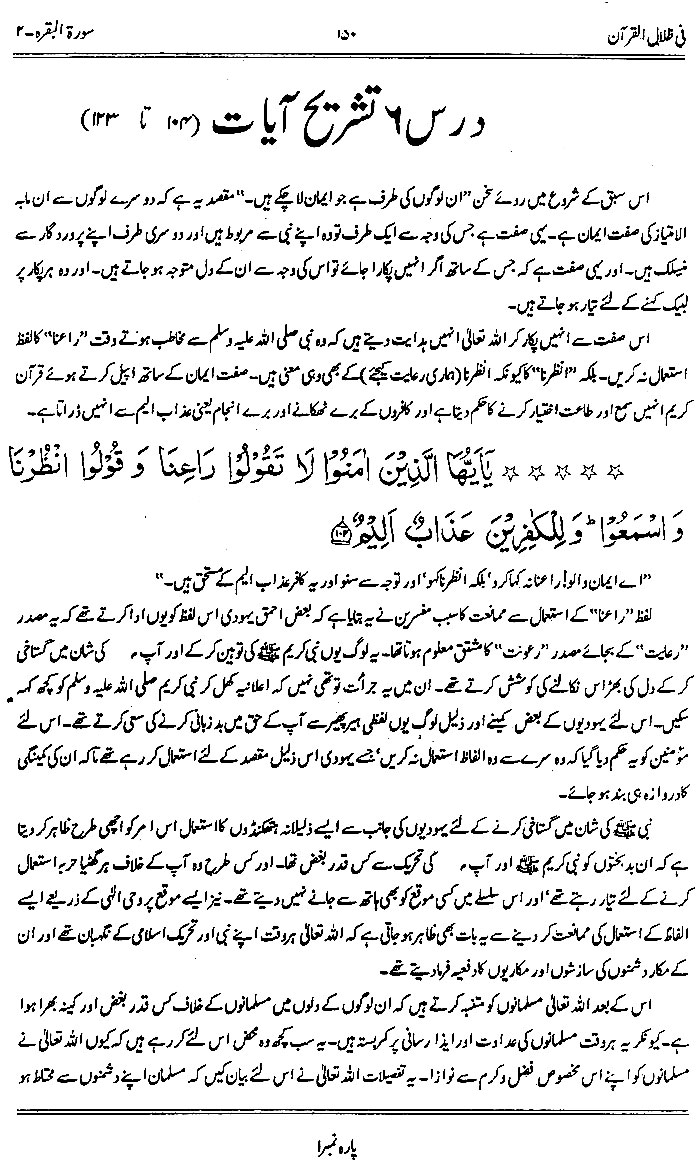 فی ظلال القرآن ۱۵۰ سورۃ البقرہ-۲
درس ۶ تشریح آیات (۱۰۴ تا ۱۲۳)
اس سبق کے شروع میں روئے سخن "ان لوگوں کی طرف ہے جو ایمان لا چکے ہیں۔" مقصد یہ ہے کہ دوسرے لوگوں سے ان مابہ
الامتیاز کی صفت ایمان ہے۔ یہی صفت ہے جس کی وجہ سے ایک طرف تو وہ اپنے نبی سے مربوط ہیں اور دوسری طرف اپنے پروردگار سے
منسلک ہیں۔ اور یہی صفت ہے کہ جس کے ساتھ اگر انہیں پکارا جائے تو اس کی وجہ سے ان کے دل متوجہ ہو جاتے ہیں۔ اور وہ ہر پکار پر
لبیک کہنے کے لئے تیار ہو جاتے ہیں۔
اس صفت سے انہیں پکار کر اللہ تعالیٰ انہیں ہدایت دیتے ہیں کہ وہ نبی صلی اللہ علیہ وسلم سے مخاطب ہوتے وقت "راعنا" کا لفظ
استعمال نہ کریں۔ بلکہ "انظرنا" کا کیونکہ انظرنا (ہماری رعایت کیجئے) کے بھی وہی معنی ہیں۔ صفت ایمان کے ساتھ اپیل کرتے ہوئے قرآن
کریم انہیں سمع اور طاعت اختیار کرنے کا حکم دیتا ہے اور کافروں کے برے ٹھکانے اور برے انجام یعنی عذاب الیم سے انہیں ڈراتا ہے۔
☆ ☆ ☆ ☆ ☆ يٰٓاَيُّهَا الَّذِيْنَ اٰمَنُوْا لَا تَقُوْلُوْا رَاعِنَا وَ قُوْلُوا انْظُرْنَا
وَ اسْمَعُوْا ؕ وَ لِلْكٰفِرِيْنَ عَذَابٌ اَلِيْمٌ ﴿۱۰۴﴾
"اے ایمان والو! راعنا نہ کہا کرو' بلکہ انظرنا کہو' اور توجہ سے سنو اور یہ کافر عذاب الیم کے مستحق ہیں۔"
لفظ "راعنا" کے استعمال سے ممانعت کا سبب مفسرین نے یہ بتایا ہے کہ بعض احمق یہودی اس لفظ کو یوں ادا کرتے تھے کہ یہ مصدر
"رعایت" کے بجائے مصدر "رعونت" کا مشتق معلوم ہوتا تھا۔ یہ لوگ یوں نبی کریم ﷺ کی توہین کرکے اور آپ ﷺ کی شان میں گستاخی
کر کے دل کی بھڑاس نکالنے کی کوشش کرتے تھے۔ ان میں یہ جرأت تو تھی نہیں کہ اعلانیہ کھل کر نبی کریم صلی اللہ علیہ وسلم کو کچھ کہہ
سکیں۔ اس لئے یہودیوں کے بعض کمینے اور ذلیل لوگ یوں لفظی ہیر پھیر سے آپ کے حق میں بد زبانی کرنے کی سعی کرتے تھے۔ اس لئے
مؤمنین کو یہ حکم دیا گیا کہ وہ سرے سے وہ الفاظ استعمال نہ کریں' جسے یہودی اس ذلیل مقصد کے لئے استعمال کر رہے تھے تاکہ ان کی کمینگی
کا دروازہ ہی بند ہو جائے۔
نبی ﷺ کی شان میں گستاخی کرنے کے لئے یہودیوں کی جانب سے ایسے ذلیلانہ ہتھکنڈوں کا استعمال اس امر کو اچھی طرح ظاہر کر دیتا
ہے کہ ان بدبختوں کو نبی کریم ﷺ اور آپ ﷺ کی تحریک سے کس قدر بغض تھا۔ اور کس طرح وہ آپ کے خلاف ہر گھٹیا حربہ استعمال
کرنے کے لئے تیار رہتے تھے' اور اس سلسلے میں کسی موقع کو بھی ہاتھ سے جانے نہیں دیتے تھے۔ نیز ایسے موقع پر وحی الٰہی کے ذریعے ایسے
الفاظ کے استعمال کی ممانعت کر دینے سے یہ بات بھی ظاہر ہو جاتی ہے کہ اللہ تعالیٰ ہر وقت اپنے نبی اور تحریک اسلامی کے نگہبان تھے اور ان
کے مکار دشمنوں کی سازشوں اور مکاریوں کا دفعیہ فرما دیتے تھے۔
اس کے بعد اللہ تعالیٰ مسلمانوں کو متنبہ کرتے ہیں کہ ان لوگوں کے دلوں میں مسلمانوں کے خلاف کس قدر بغض اور کینہ بھرا ہوا
ہے۔ کیونکہ یہ ہر وقت مسلمانوں کی عداوت اور ایذا رسانی پر کمربستہ ہیں۔ یہ سب کچھ وہ محض اس لئے کر رہے ہیں کہ کیوں اللہ تعالیٰ نے
مسلمانوں کو اپنے اس مخصوص فضل و کرم سے نوازا۔ یہ تفصیلات اللہ تعالیٰ نے اس لئے بیان کیں کہ مسلمان اپنے دشمنوں سے محتاط ہو
پارہ نمبر۱